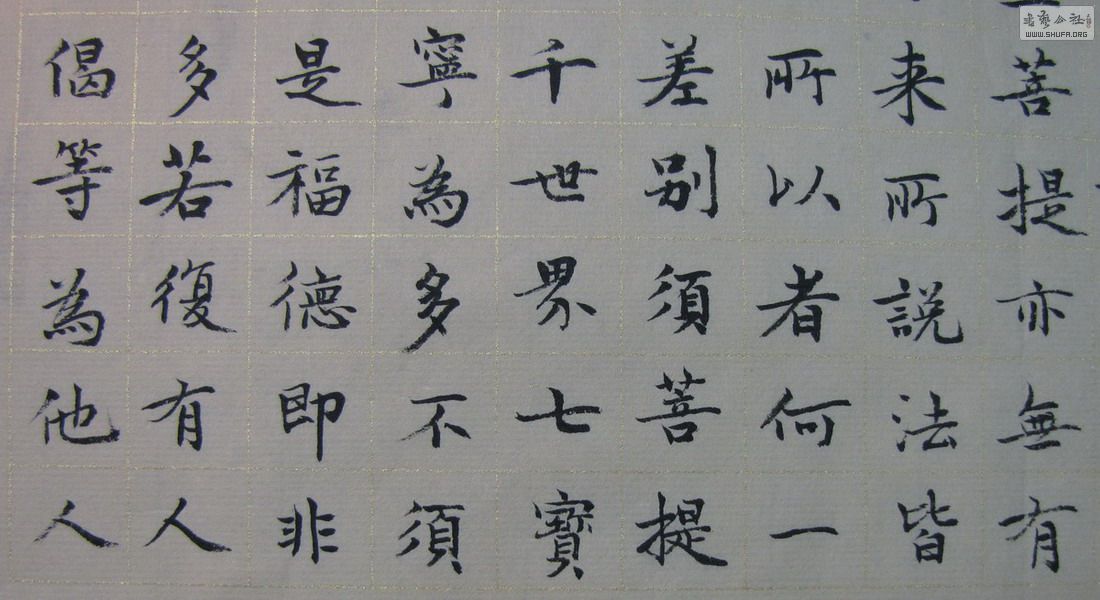 菩提亦無有
来所說法皆
所以者何一
差别須菩提
千世界七寶
寧為多不須
是福德即非
多若復有人
偈等為他人
WWW.SHUFA.ORG